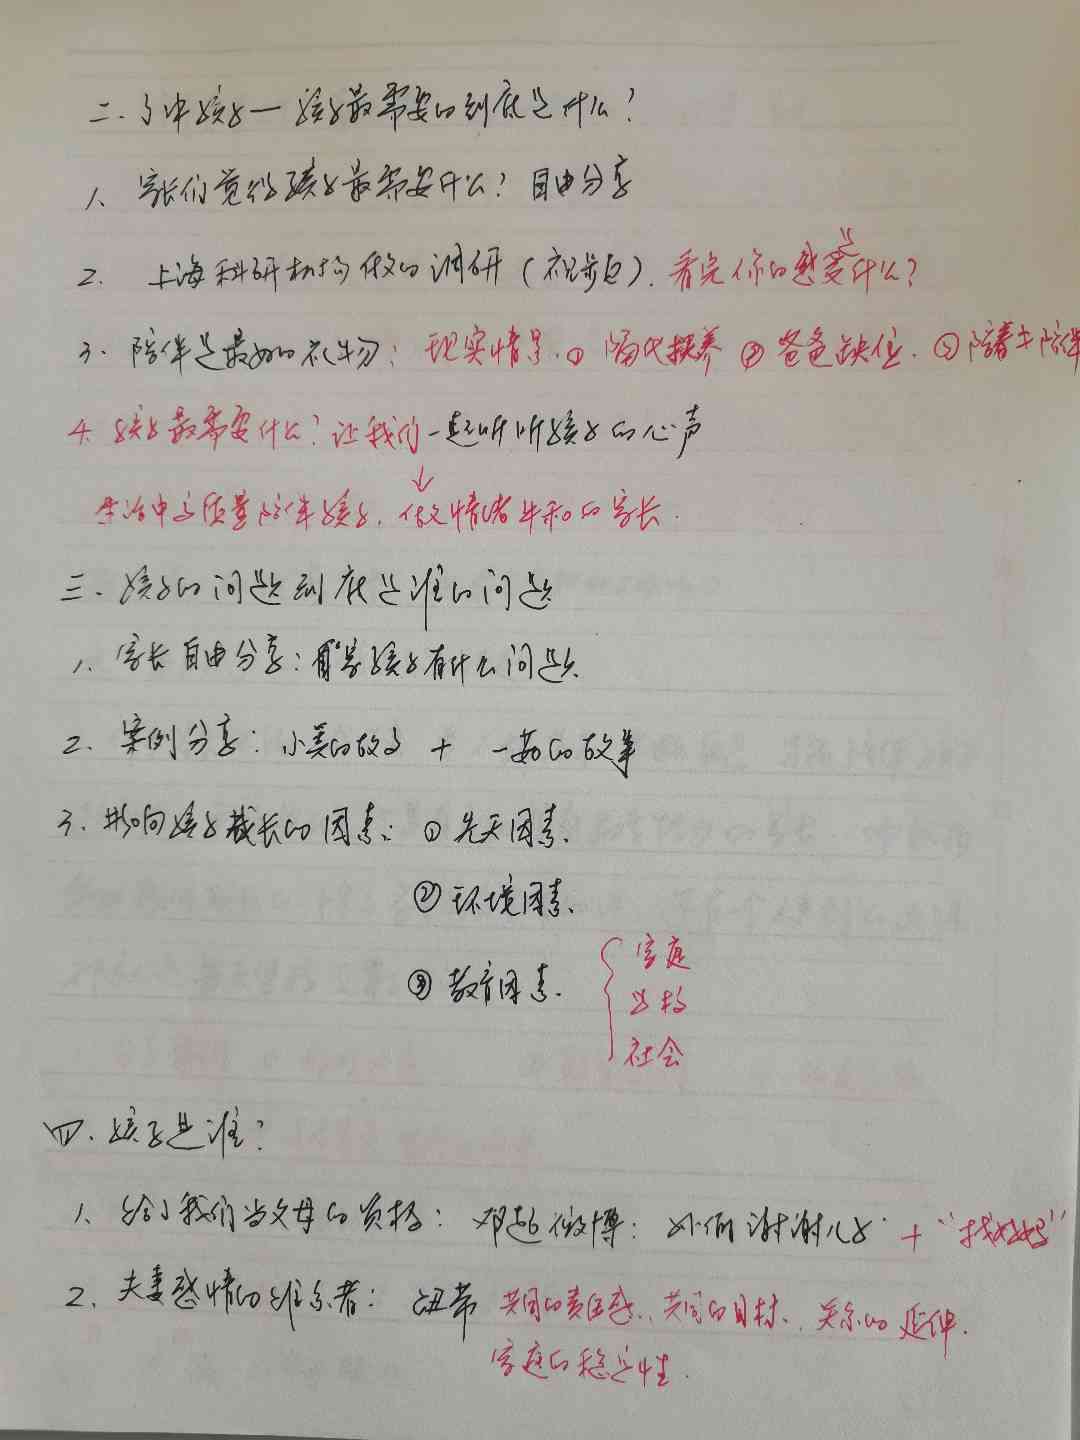 二.了解孩子—孩子最需要的到底是什么？
1、家长们觉得孩子最需要什么？自由分享
2、上海科研机构做的调研（视频).看完你的感受是什么？
3.陪伴是最好的礼物：现实情景.①隔代抚养②爸爸缺位.③陪着≠陪伴
4.孩子最需要什么？让我们一起听听孩子的心声
↓
生活中高质量陪伴孩子.做情绪平和的家长.
三.孩子的问题到底是谁的问题
1、家长自由分享：自家孩子有什么问题.
2、案例分享：小美的故事+一茹的故事
3.影响孩子成长的因素：①先天因素.
②环境因素.
③教育因素.
家庭
学校
社会
四.孩子是谁？
1、给了我们当父母的资格：邓超微博：他们谢谢儿子+“找妈妈”
2、夫妻感情的维系者：纽带 共同的责任感、共同的目标、关系的延伸.
家庭的稳定性.